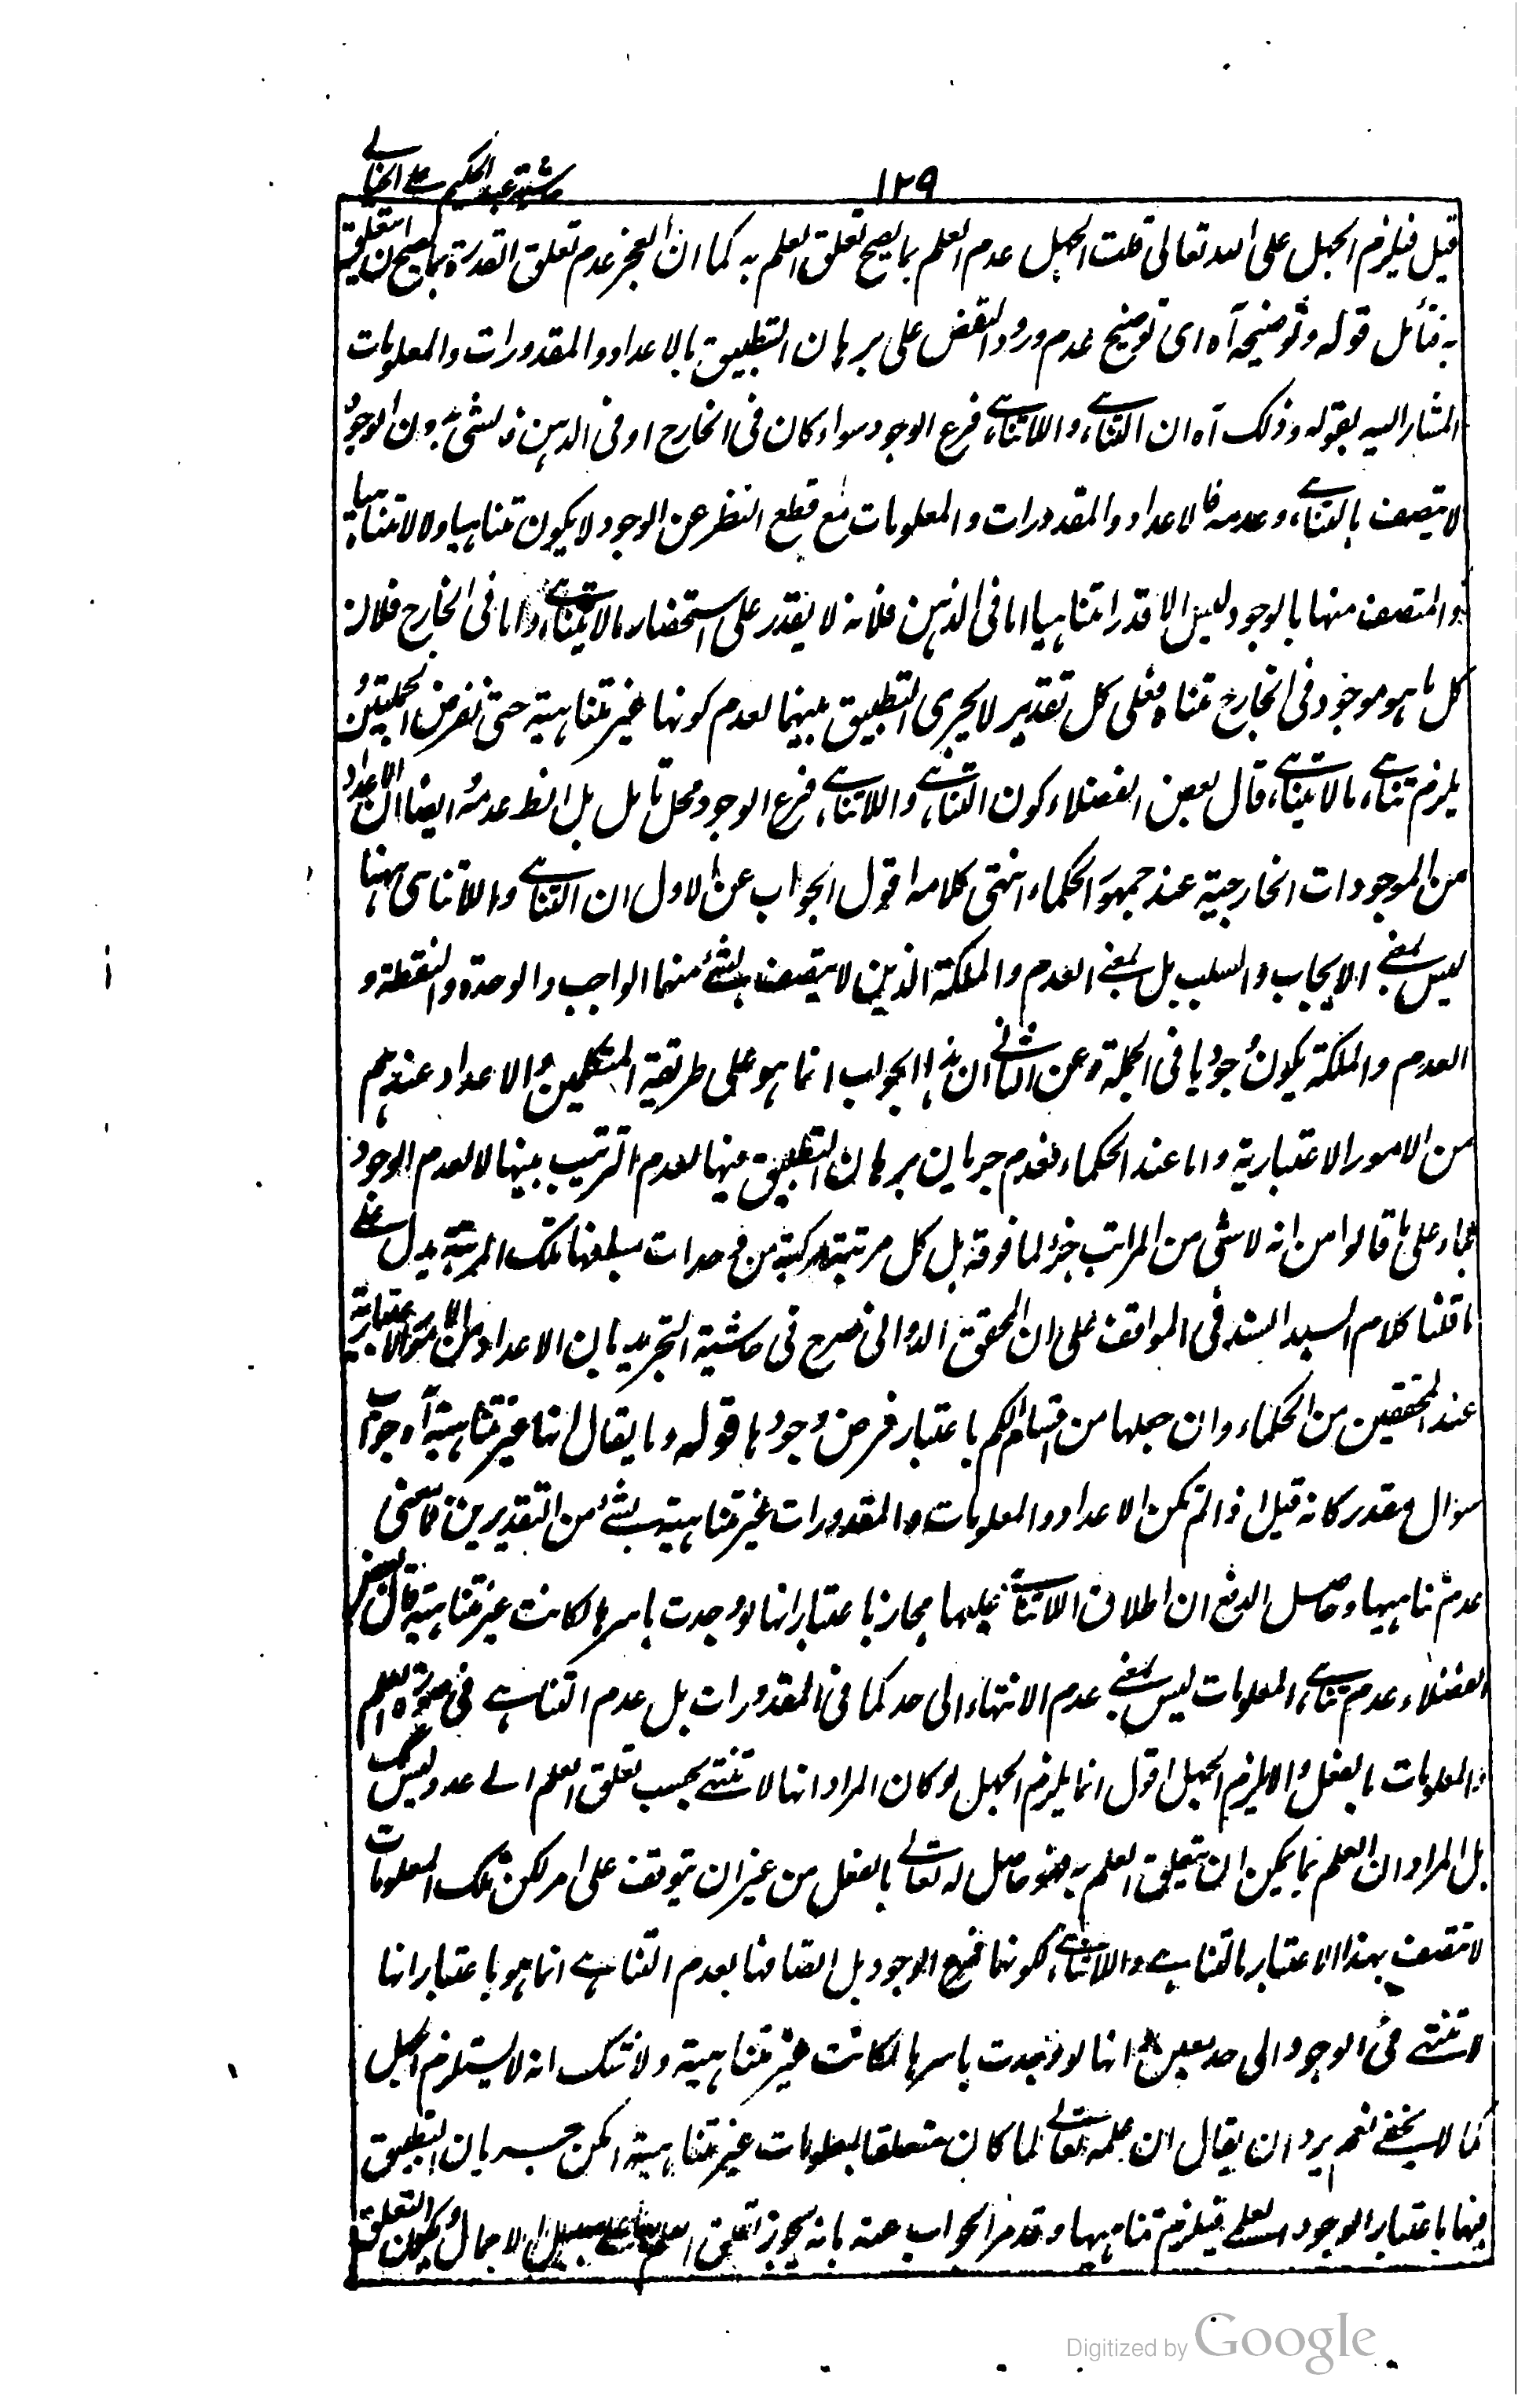 ١٢٩
حاشية عبد الحكيم على الخيالي
قيل فيلزم الجهل على الله تعالى قلت الجهل عدم العلم بما يصح تعلق العلم به كما ان العجز عدم تعلق القدرة بما يصح ان يتعلق
به فتأمل قوله وتوضيحه آه اى توضيح عدم ورود النقض على برهان التطبيق بالاعداد والمقدورات والمعلومات
المشار اليه بقوله وذلك آه ان التناهي واللاتناهي فرع الوجود سواء كان فى الخارج او فى الذهن فالشئ بدون الوجود
لا يتصف بالتناهي وعدمه فالاعداد والمقدورات والمعلومات مع قطع النظر عن الوجود لا يكون متناهيا ولا لامتناهيا
والمتصف منها بالوجود ليس الا قدرا متناهيا اما فى الذهن فلانه لا يقدر على استحضار ما لا يتناهي واما فى الخارج فلان
كل ما هو موجود فى الخارج متناه فعلى كل تقدير لا يجرى التطبيق بينهما لعدم كونها غير متناهية حتى نفرض الجملتين
يلزم تناهي ما لا يتناهي قال بعض الفضلاء كون التناهي واللاتناهي فرع الوجود محل تامل بل الظ عدمه ايضا ان الاعداد
من الموجودات الخارجية عند جمهور الحكماء انتهى كلامه اقول الجواب عن الاول ان التناهي واللاتناهى ههنا
ليس بمعنى الايجاب والسلب بل بمعنى العدم والملكة الذين لا يتصف بشئ منهما الواجب والوحدة والنقطة و
العدم والملكة يكون وجوديا فى الجملة وعن الثانى ان هذا الجواب انما هو على طريقة المتكلمين والاعداد عندهم
من الامور الاعتبارية واما عند الحكماء فعدم جريان برهان التطبيق فيها لعدم الترتيب بينها لا لعدم الوجود
بناء على ما قالوا من انه لا شئ من المراتب جزء لما فوقه بل كل مرتبة مركبة من وحدات مبلغها تلك المرتبة يدل على
ما قلنا كلام السيد السند فى المواقف على ان المحقق الدوانى صرح فى حاشية التجريد بان الاعداد من الامور الاعتبارية
عند المحققين من الحكماء وان جعلها من اقسام الكم باعتبار فرض وجودها قوله وما يقال انها غير متناهية آه جواب
سؤال مقدر كانه قيل اذا لم تكن الاعداد والمعلومات والمقدورات غير متناهية بشئ من التقديرين فما معنى
عدم تناهيها وحاصل الدفع ان اطلاق اللاتناهي عليها مجاز باعتبار انها لو وجدت باسرها لكانت غير متناهية قال بعض
الفضلاء عدم تناهي المعلومات ليس بمعنى عدم الانتهاء الى حد كما فى المقدورات بل عدم التناهي فى صورة العلم
والمعلومات بالفعل والا يلزم الجهل اقول انما يلزم الجهل لو كان المراد انها لا تنتهى بحسب تعلق العلم الى عدد وليس كك
بل المراد ان العلم بما يمكن ان يتعلق العلم به فهو حاصل له تعالى بالفعل من غير ان يتوقف على امر لكن تلك المعلومات
لا تتصف بهذا الاعتبار بالتناهي واللاتناهي لكونهما فرع الوجود بل اتصافها بعدم التناهي انما هو باعتبار انها
لا تنتهى فى الوجود الى حد معين انها لو وجدت باسرها لكانت غير متناهية ولا شك انه لا يستلزم الجهل
كما لا يخفى نعم يرد ان يقال ان علمه تعالى لما كان متعلقا بمعلومات غير متناهية امكن جريان التطبيق
فيها باعتبار الوجود العلمي فيلزم تناهيها وقد مر الجواب عنه بانه يجوز تعلق العلم بها على سبيل الاجمال ويكون التعلق
Digitized by Google